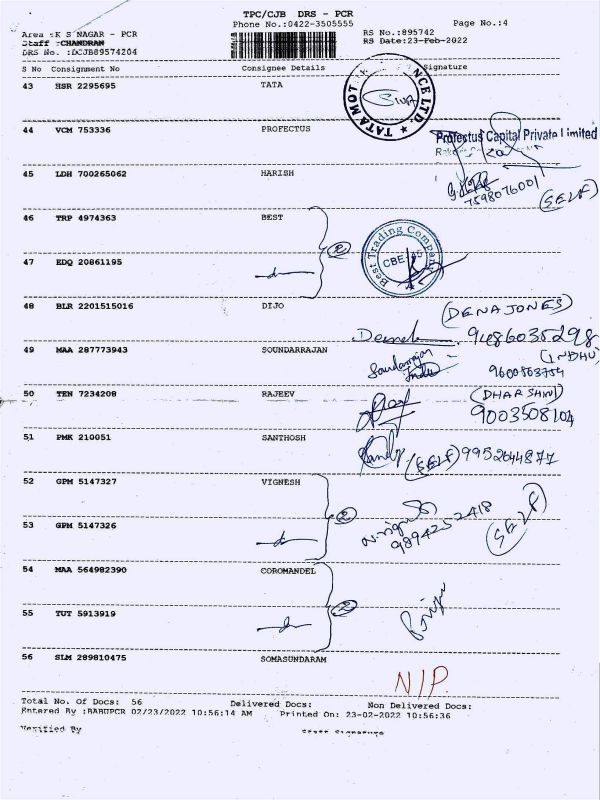 TPC/CJB DRS - PCR
Phone No.:0422-3505555
Page No.:4
Area :K S NAGAR - PCR
RS No.:895742
Staff :CHANDRAN
RS Date:23-Feb-2022
DRS No. :DCJB89574204
S No Consignment No Consignee Details Signature
43 HSR 2295695 TATA
TATA MOT NCE LTD.
44 VCM 753336 PROFECTUS
Profectus Capital Private Limited
45 LDH 700265062 HARISH
7598076001
(SELF)
46 TRP 4974363 BEST
Best Trading Company
CBE
47 EDQ 20861195
48 BLR 2201515016 DIJO
(DENA JONES)
9486035298
49 MAA 287773943 SOUNDARRAJAN
Soundarrajan
(INDHU)
9600863754
50 TEN 7234208 RAJEEV
(DHARSHNI)
9003508104
51 PMK 210051 SANTHOSH
(SELF) 9952644877
52 GPM 5147327 VIGNESH
9894252418
(SELF)
53 GPM 5147326
54 MAA 564982390 COROMANDEL
55 TUT 5913919
56 SLM 289810475 SOMASUNDARAM
N/P
Total No. Of Docs: 56 Delivered Docs: Non Delivered Docs:
Entered By :BABUPCR 02/23/2022 10:56:14 AM Printed On: 23-02-2022 10:56:36
Verified By Staff Signature